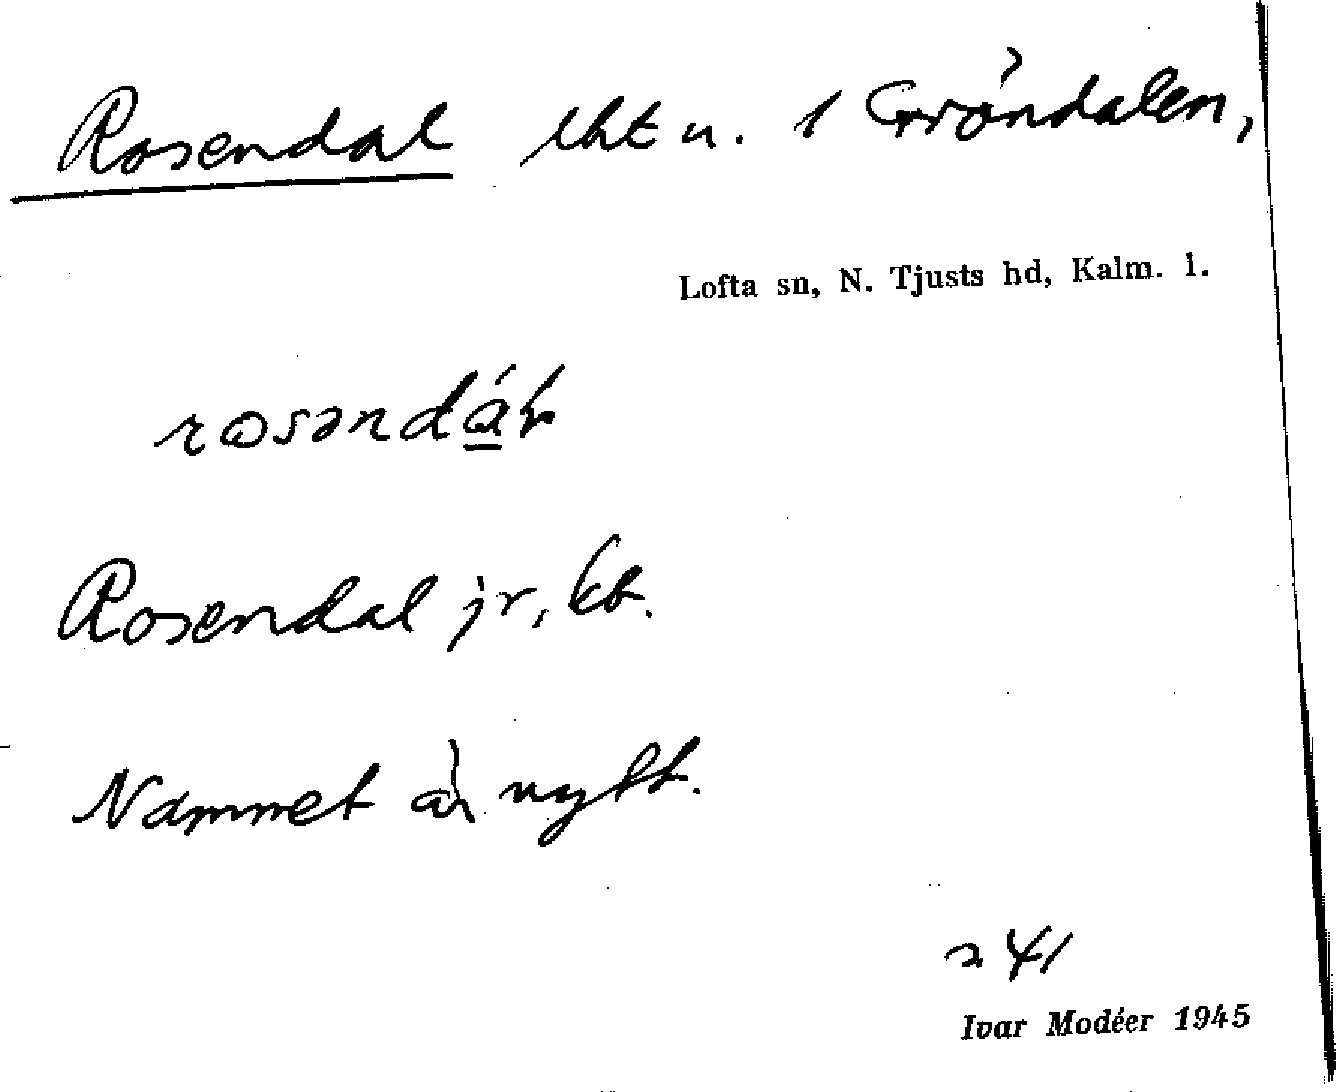 Rosendal lht u. 1 Gröndalen,
Lofta sn, N. Tjusts hd, Kalm. l.
Rosendal jr, kb.
Namnet är nytt.
241
Ivar Modéer 1945